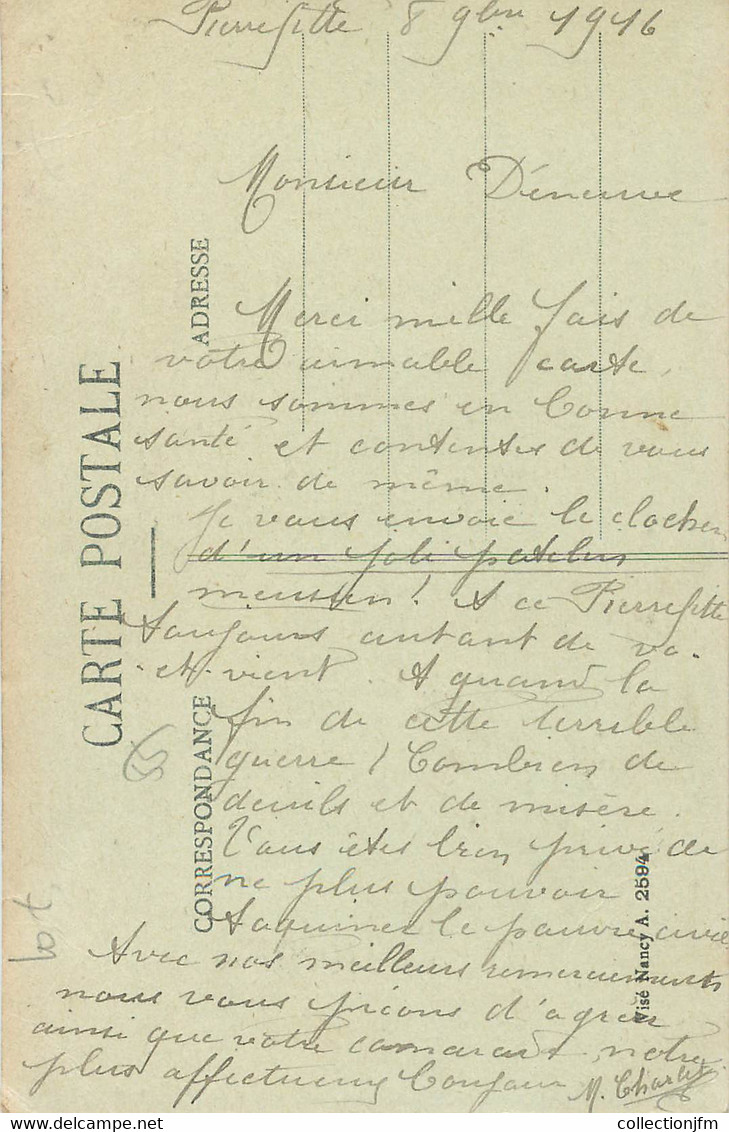 Pierrefitte 8 9bre 1916
Monsieur Déneuve
Merci mille fois de
votre aimable carte,
nous sommes en bonne
santé et contentes de vous
savoir de même.
Je vous envoie le clocher
d'un joli patelin
meusien! A ce Pierrefitte
toujours autant de va-
et-vient. A quand la
fin de cette terrible
guerre! Combien de
deuils et de misère.
Vous êtes bien privé de
ne plus pouvoir
taquiner le pauvre civil
Avec nos meilleurs remerciements
nous vous prions d'agréer
ainsi que votre camarade, notre
plus affectueux bonjour M. Charlet
CARTE POSTALE
ADRESSE
CORRESPONDANCE
Visé Nancy A. 2594
55
lot
collectionjfm